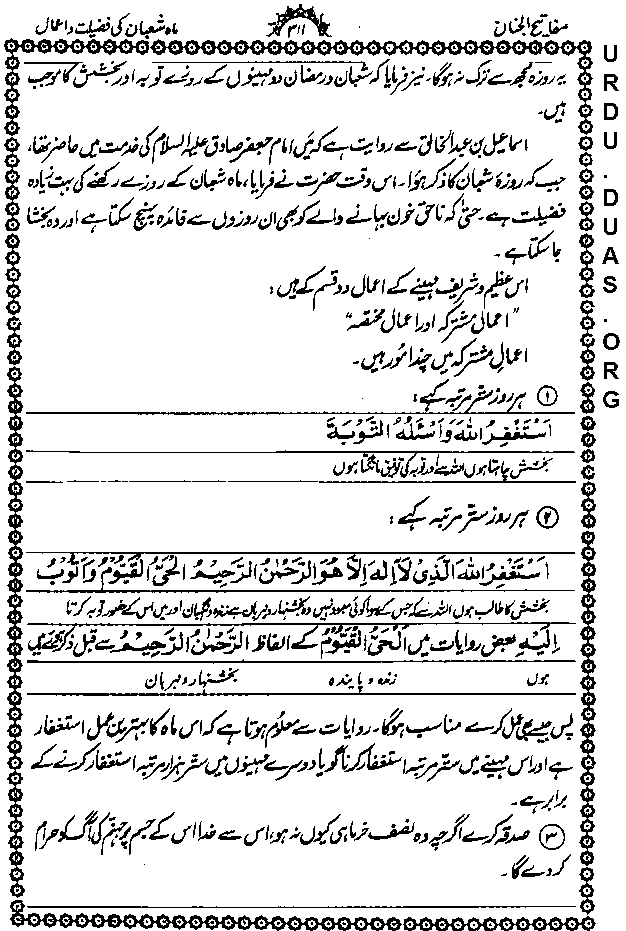 مفاتیح الجنان ۳۱۱ ماہ شعبان کی فضیلت و اعمال
یہ روزہ مجھ سے ترک نہ ہوگا۔ نیز فرمایا کہ شعبان و رمضان دو مہینوں کے روزے توبہ اور بخشش کا موجب
ہیں۔
اسماعیل بن عبدالخالق سے روایت ہے کہ میں امام جعفر صادق علیہ السلام کی خدمت میں حاضر تھا،
جب کہ روزۂ شعبان کا ذکر ہوا۔ اس وقت حضرت نے فرمایا، ماہ شعبان کے روزے رکھنے کی بہت زیادہ
فضیلت ہے۔ حتیٰ کہ ناحق خون بہانے والے کو بھی ان روزوں سے فائدہ پہنچ سکتا ہے اور وہ بخشا
جا سکتا ہے۔
اس عظیم و شریف مہینے کے اعمال دو قسم کے ہیں:
"اعمال مشترکہ اور اعمال مختصہ"
اعمال مشترکہ میں چند امور ہیں۔
① ہر روز ستر مرتبہ کہے:
اَسْتَغْفِرُ اللهَ وَاَسْئَلُهُ التَّوْبَةَ
بخشش چاہتا ہوں اللہ سے اور توبہ کی توفیق مانگتا ہوں
② ہر روز ستر مرتبہ کہے:
اَسْتَغْفِرُ اللهَ الَّذِىْ لَآ اِلٰهَ اِلَّا هُوَ الرَّحْمٰنُ الرَّحِيْمُ الْحَىُّ الْقَيُّوْمُ وَاَتُوْبُ
بخشش کا طالب ہوں اللہ سے کہ جس کے سوا کوئی معبود نہیں وہ بخشنہار و مہربان ہے زندہ و نگہبان اور میں اس کے حضور توبہ کرتا
اِلَيْهِ بعض روایات میں اَلْحَىُّ الْقَيُّوْمُ کے الفاظ اَلرَّحْمٰنُ الرَّحِيْمُ سے قبل ذکر ہوئے ہیں
ہوں زندہ و پایندہ بخشنہار و مہربان
پس جیسے بھی عمل کرے مناسب ہوگا۔ روایات سے معلوم ہوتا ہے کہ اس ماہ کا بہترین عمل استغفار
ہے اور اس مہینے میں ستر مرتبہ استغفار کرنا گویا دوسرے مہینوں میں ستر ہزار مرتبہ استغفار کرنے کے
برابر ہے۔
③ صدقہ کرے اگرچہ وہ نصف خرما ہی کیوں نہ ہو، اس سے خدا اس کے جسم پر جہنم کی آگ کو حرام
کر دے گا۔
URDU.DUAS.ORG